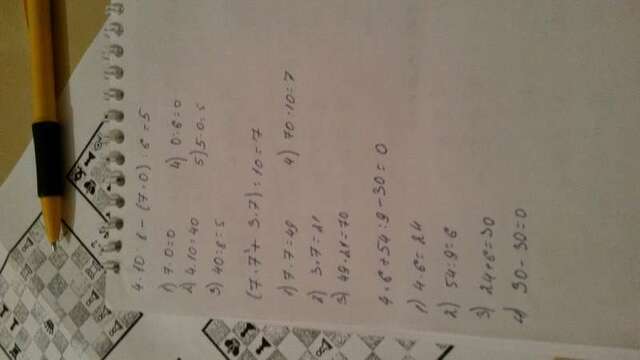 4·10:8-(7·0):6=5
1) 7·0=0
2) 4·10=40
3) 40:8=5
4) 0:6=0
5) 5-0=5
(7·7+3·7):10=7
1) 7·7=49
2) 3·7=21
3) 49+21=70
4) 70:10=7
4·6+54:9-30=0
1) 4·6=24
2) 54:9=6
3) 24+6=30
4) 30-30=0